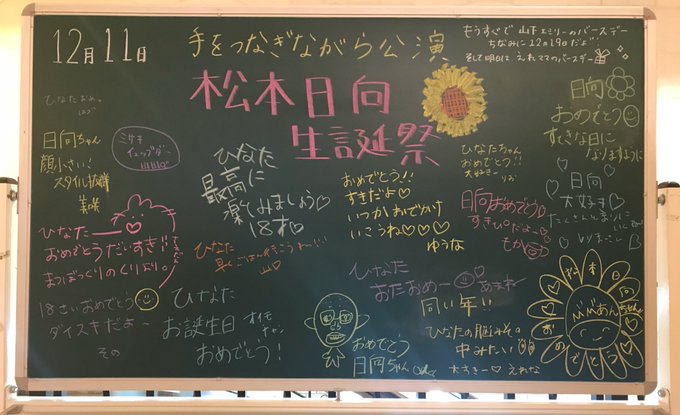 12月11日
手をつなぎながら公演
もうすぐで 山下エミリーのバースデー
ちなみに12月19日だよ
そして明日は、えれママのバースデー
松本日向
生誕祭
ひなたおめ。
日向ちゃん
顔小さい!
スタイル抜群
美咲
ミサキ
ひなた
最高に
楽しみましょう♡
18才♡
おめでとう!!
すきだよ♡
いつかおでかけ
いこうね♡♡♡
ゆうな
ひなたちゃん
おめでとう!!
大好きー
日向おめでとう♡
すきぴだよ〜♡
もか
日向
おめでとう
すてきな日に
なりますように
♡日向
大好き♡
ひなた
おめでとうだいすき!!
まつぼっくりのくり
ひなた
早くごはん行こうねー!!!
18さいおめでとう
ダイスキだよ〜
その
ひなた
お誕生日
おめでとう!
おめでとう
日向ちゃん
ひなた
おたおめー
同い年!!
ひなたの脳みその
中みたい
大すきー♡ えれな
おめでとう